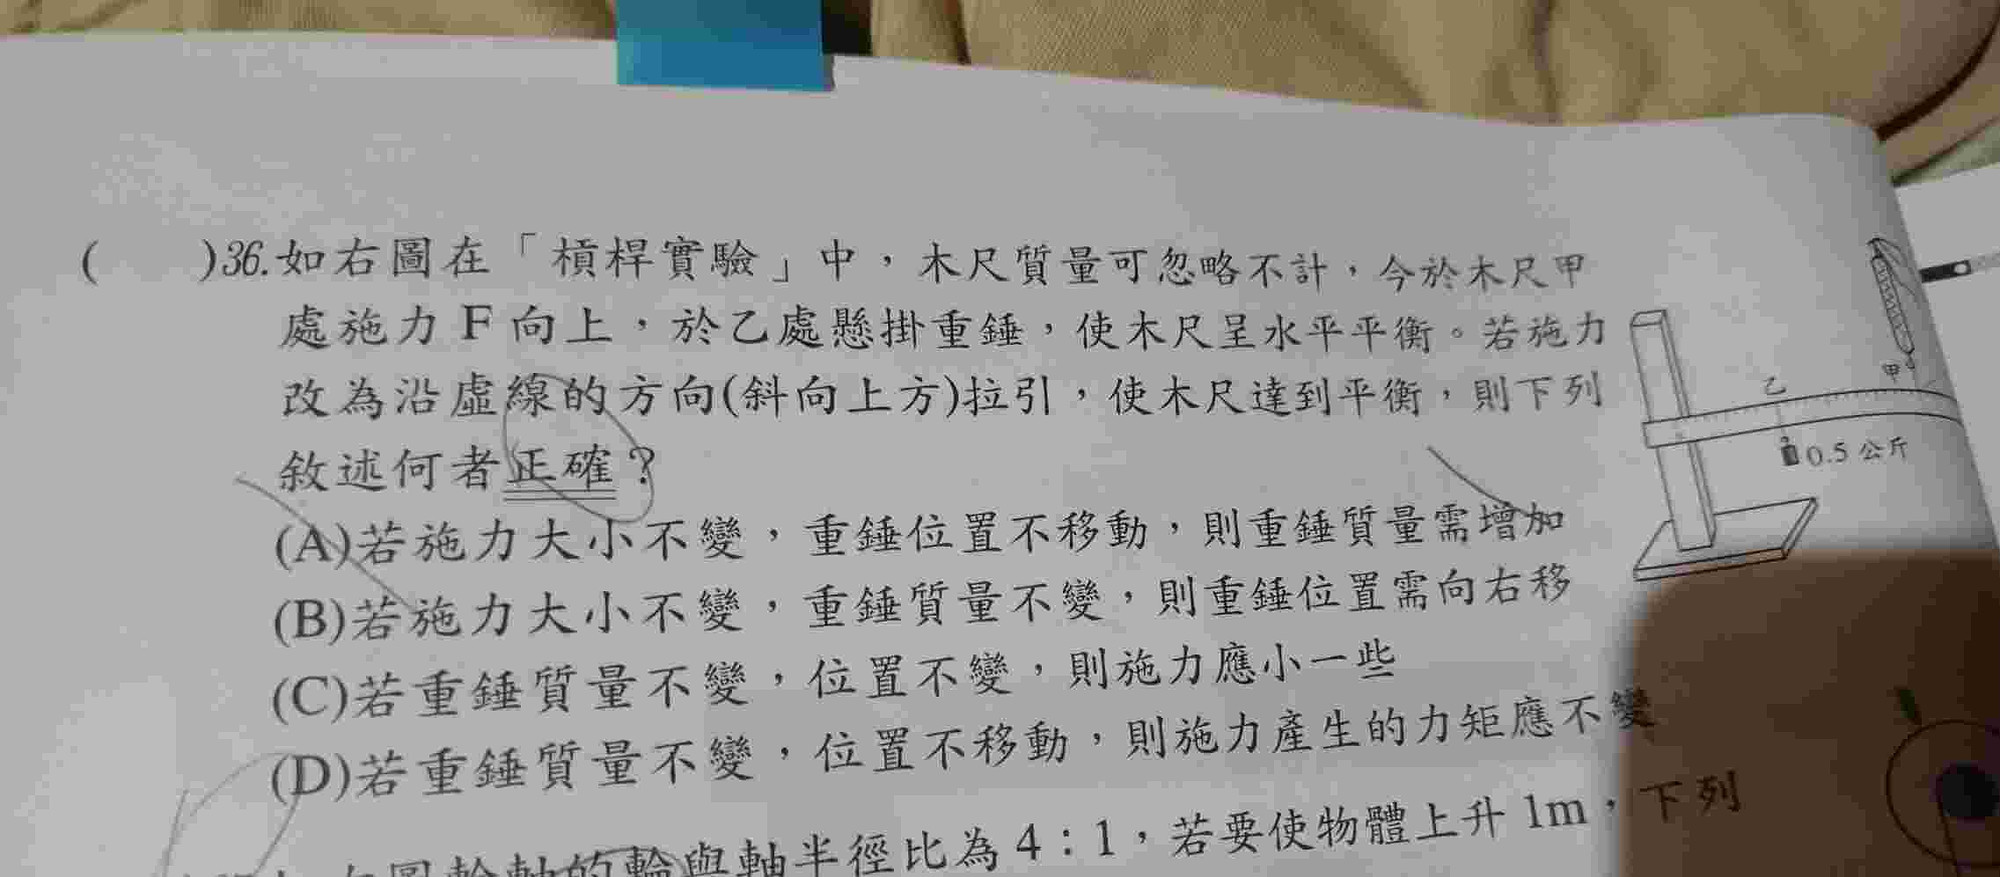 (　　)36.如右圖在「槓桿實驗」中，木尺質量可忽略不計，今於木尺甲
處施力 F 向上，於乙處懸掛重錘，使木尺呈水平平衡。若施力
改為沿虛線的方向(斜向上方)拉引，使木尺達到平衡，則下列
敘述何者正確？
(A)若施力大小不變，重錘位置不移動，則重錘質量需增加
(B)若施力大小不變，重錘質量不變，則重錘位置需向右移
(C)若重錘質量不變，位置不變，則施力應小一些
(D)若重錘質量不變，位置不移動，則施力產生的力矩應不變
甲
乙
0.5 公斤
輪軸的輪與軸半徑比為 4：1，若要使物體上升 1m，下列